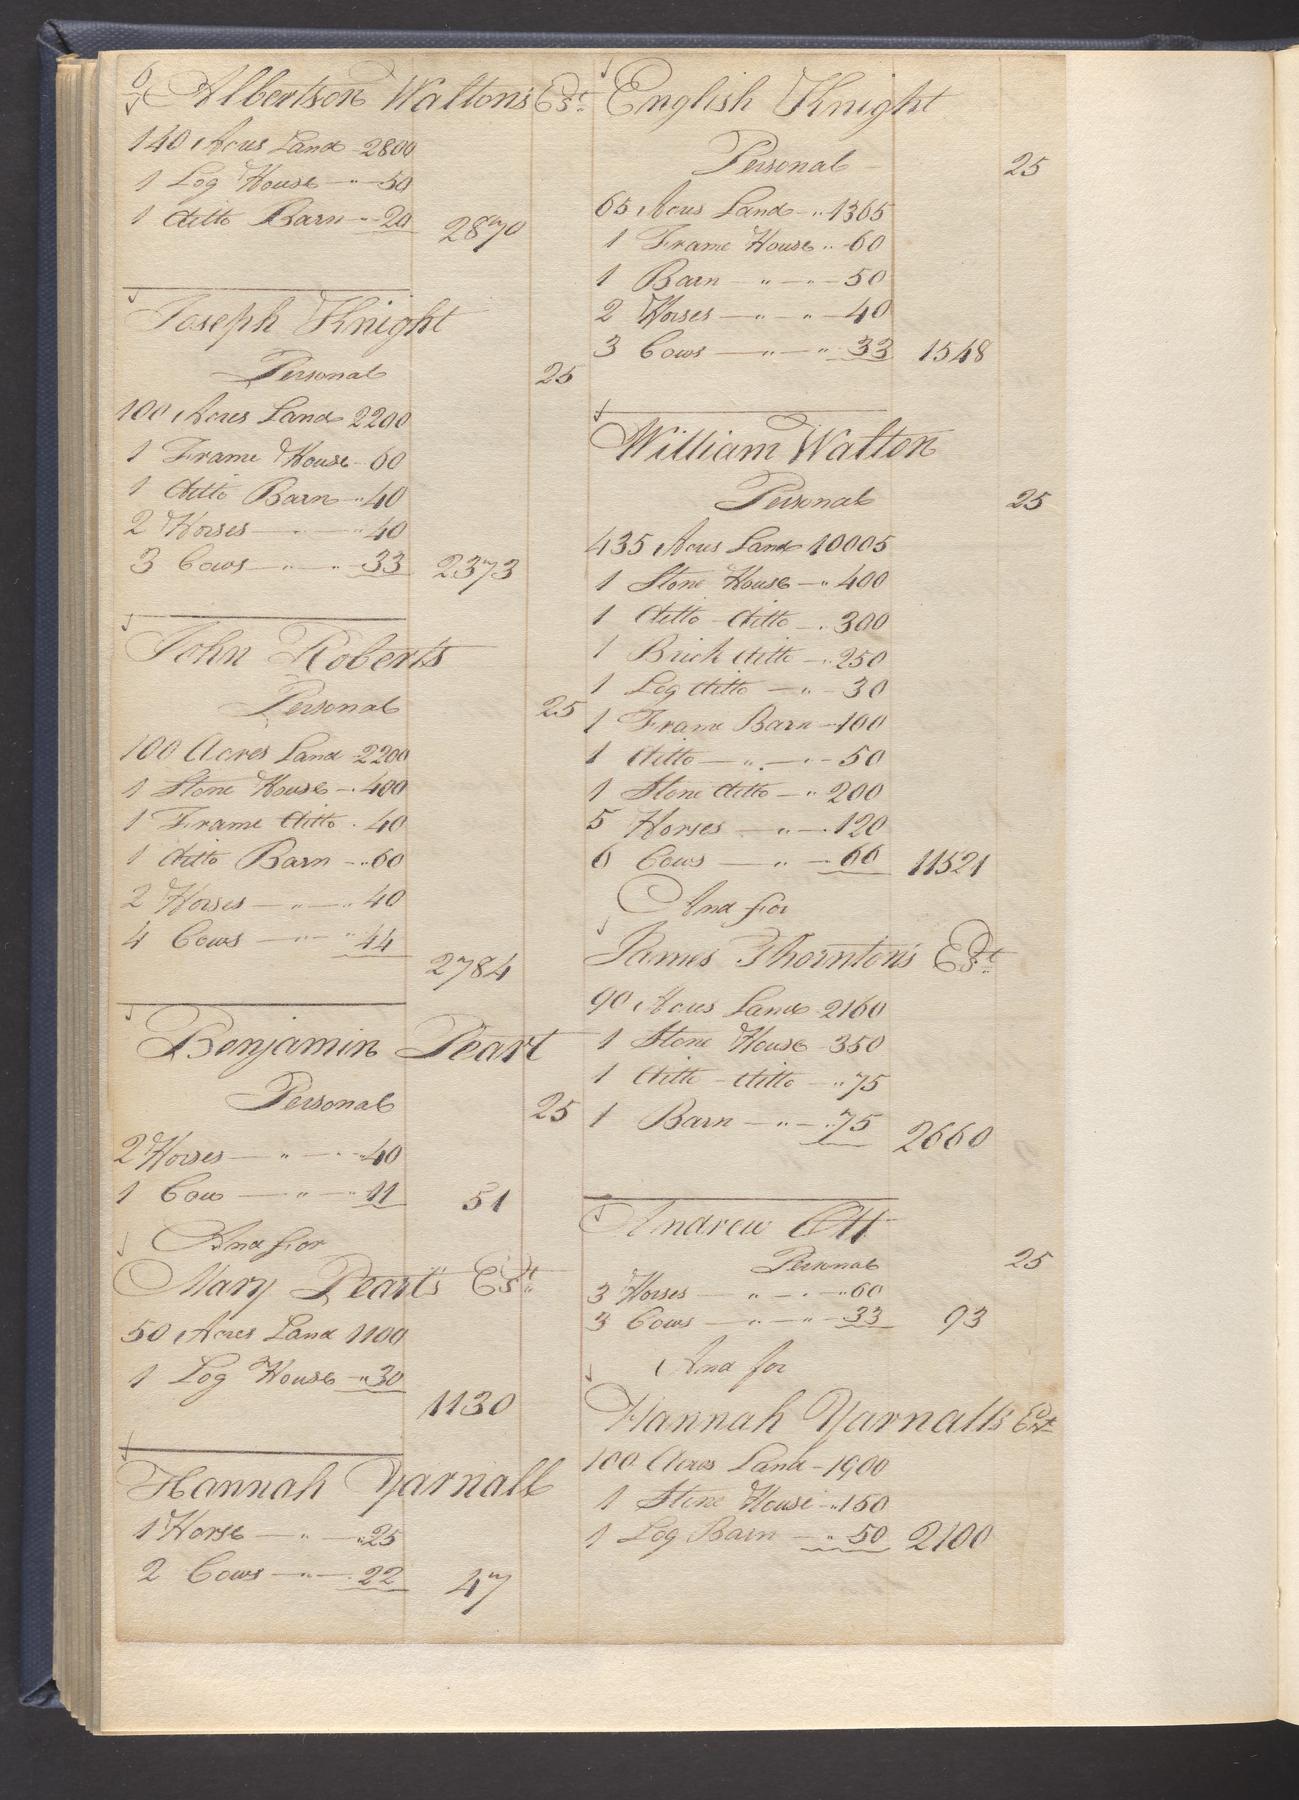 6
Albertson Walton's Est.
140 Acres Land 2800
1 Log House - " - 50
1 ditto Barn - " 20 2870
Joseph Knight
Personal 25
100 Acres Land 2200
1 Frame House - 60
1 ditto Barn - " 40
2 Horses - " - " 40
3 Cows - " - " - 33 2373
John Roberts
Personal 25
100 Acres Land 2200
1 Stone House - " 400
1 Frame ditto " 40
1 ditto Barn - " 60
2 Horses - " - " 40
4 Cows - " - " 44
2784
Benjamin Peart
Personal 25
2 Horses - " - " 40
1 Cow - " - " 11 51
And for
Mary Peart's Est.
50 Acres Land 1100
1 Log House - " 30
1130
Hannah Yarnall
1 Horse - " - " 25
2 Cows - " - 22 47
English Knight
Personal - 25
65 Acres Land - " 1365
1 Frame House " - 60
1 Barn - " - " - 50
2 Horses - " - " - 40
3 Cows - " - " 33 1548
William Walton
Personal 25
435 Acres Land 10005
1 Stone House - " 400
1 ditto ditto - " 300
1 Brick ditto - " 250
1 Log ditto - " - 30
1 Frame Barn - 100
1 ditto - " - " - 50
1 Stone ditto - " 200
5 Horses - " - " 120
6 Cows - " - 66 11521
And for
James Thornton's Est.
90 Acres Land 2160
1 Stone House 350
1 ditto - ditto - " 75
1 Barn - " - " 75 2660
Andrew Ott
Personal 25
3 Horses - " - " 60
3 Cows - " - " - 33 93
And for
Hannah Yarnall's Est
100 Acres Land - 1900
1 Stone House - " 150
1 Log Barn - " 50 2100